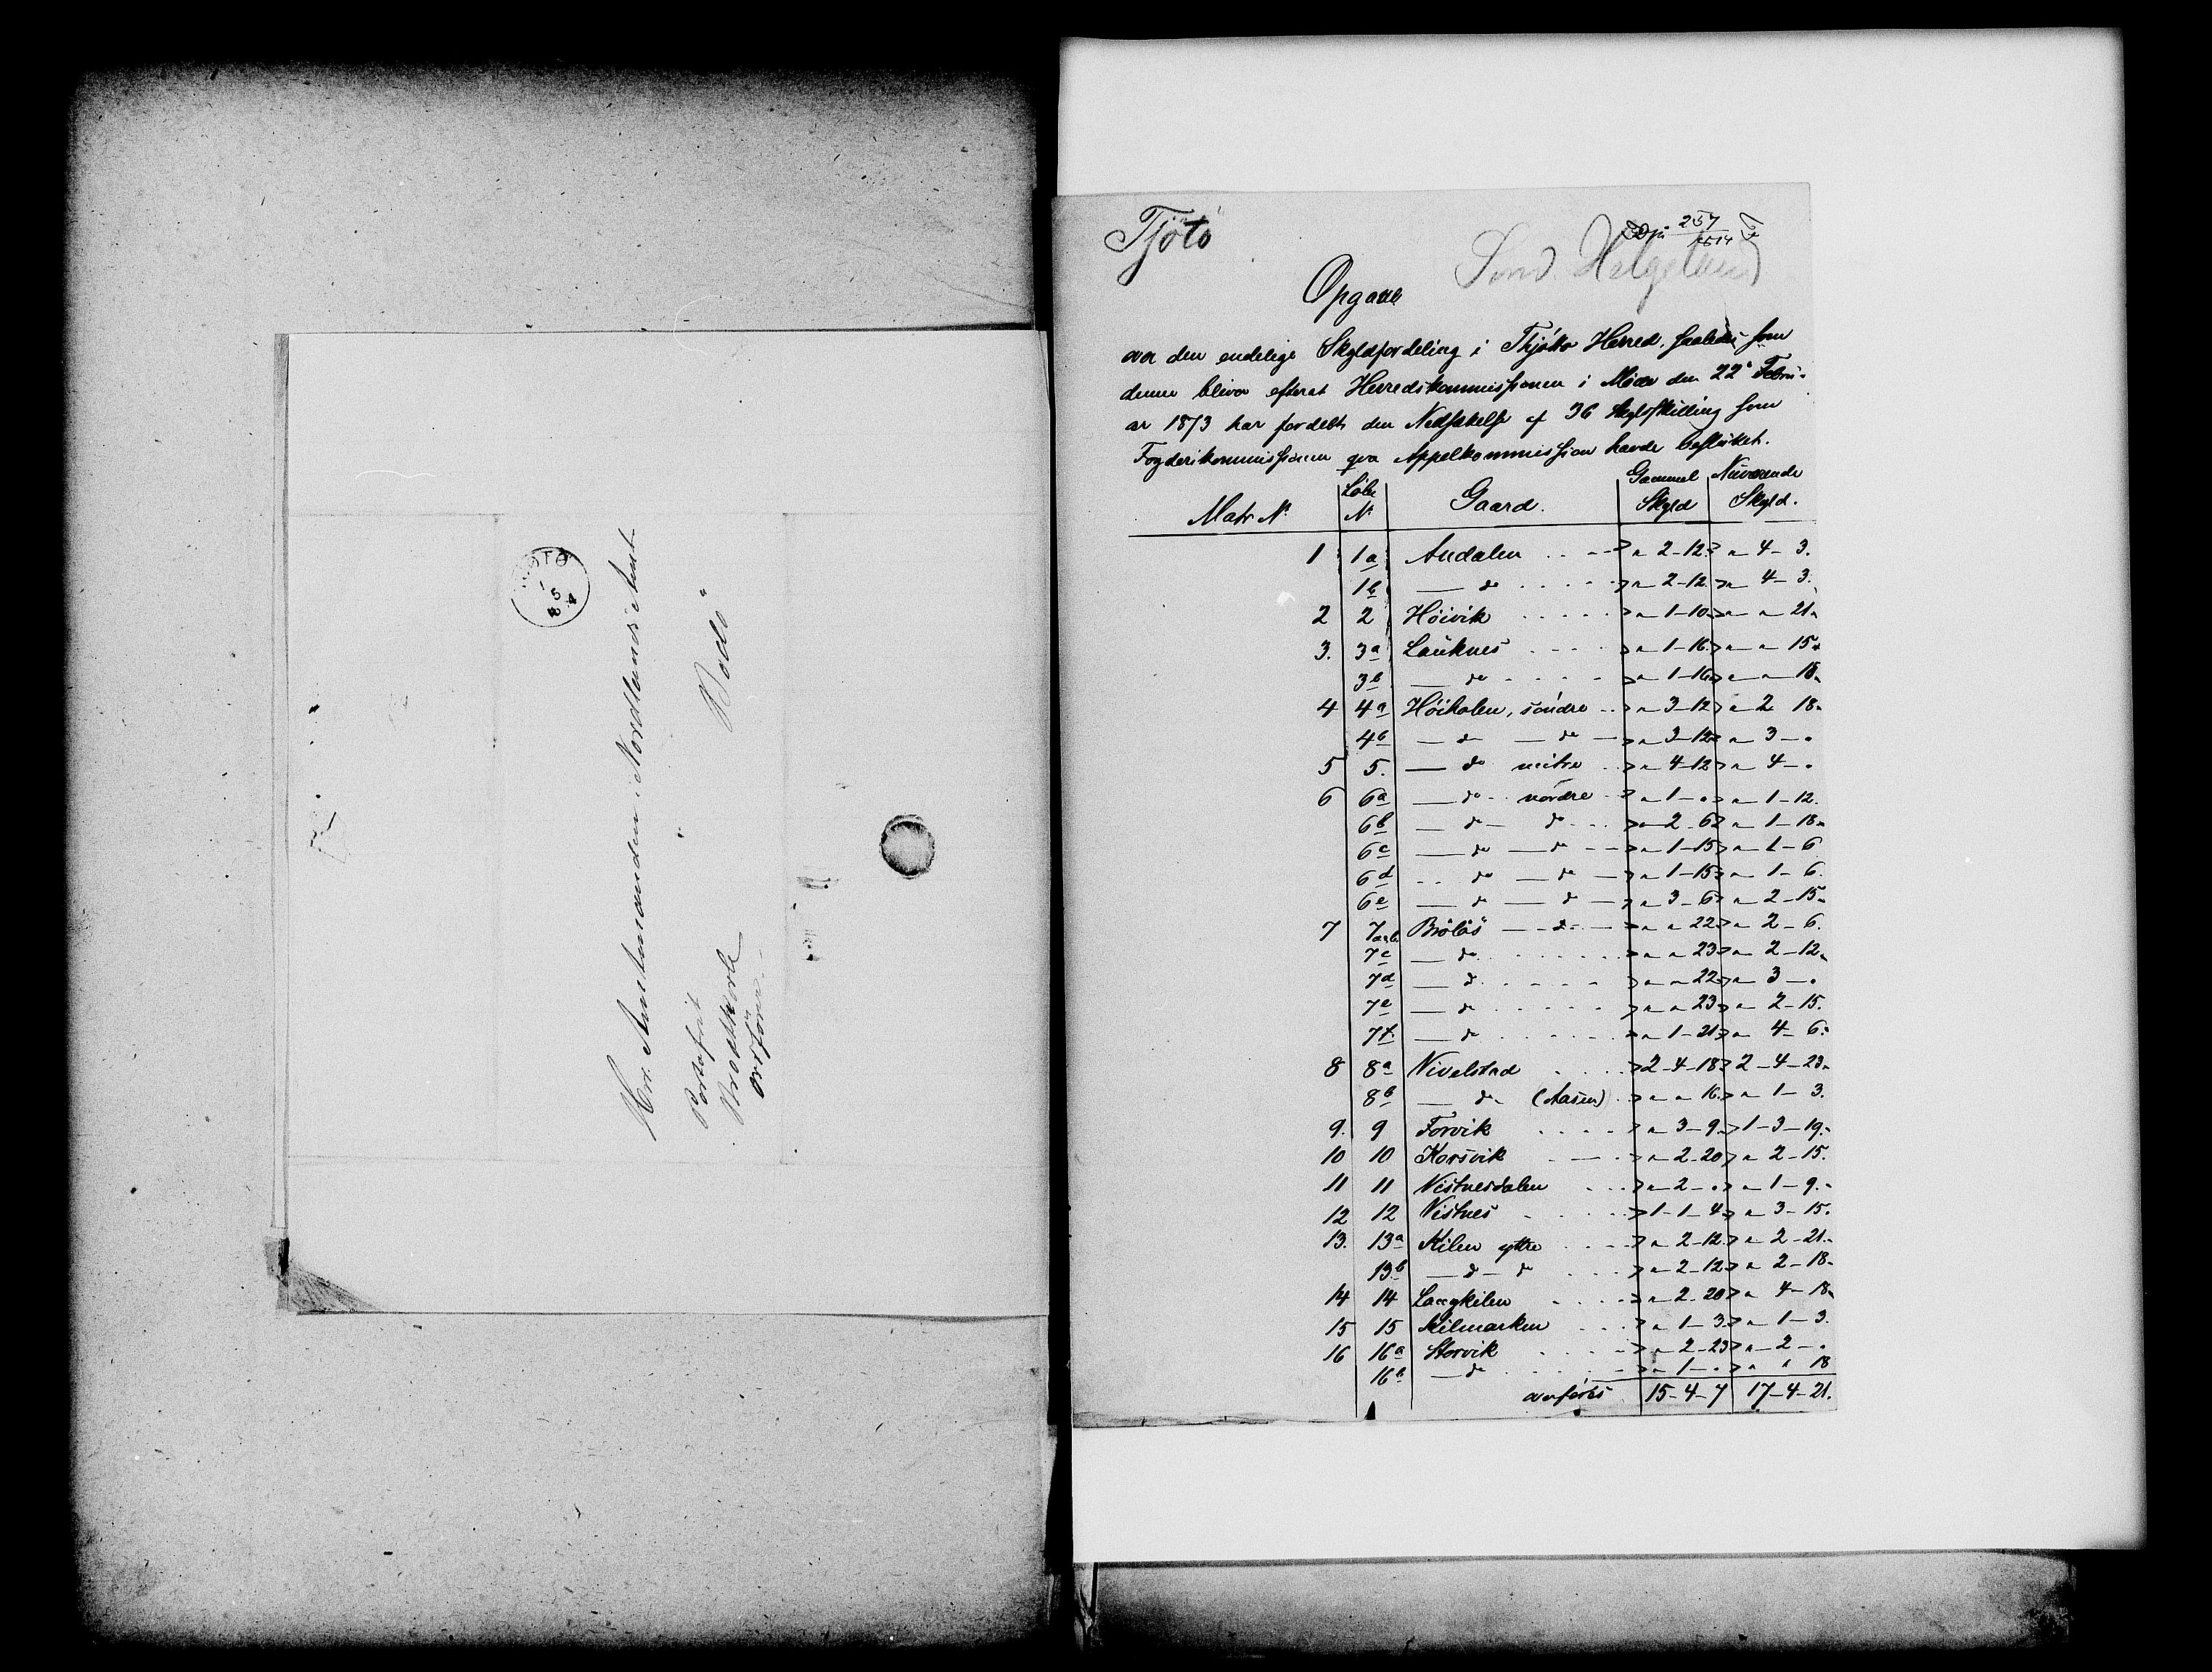 Hrr. Amtmanden i Nordlands Amt
Bodö
Portofrit
Brodtkorb
Ordförer
Tjötö
257
Sönd. Helgeland
Opgave
over den endelige Skyldfordeling i Thjøttø Herred, saaledes som
denne bliver efterat Herredskommissionen i Møde den 22de Febru-
ar 1873 har fordelt den Nedsættelse af 36 Skylskilling som
Fogderikommissionen qva Appelkommission havde besluttet.
Matr N. | Löbe N. | Gaard. | Gammel Skyld | Nuværende Skyld.
1 1a Andalen . . - " 2-12 " 4-3.
1b — do . . . . " 2-12 " 4-3.
2 2 Höivik . . . . " 1-10 " " 21"
3. 3a Lauknes . . . . " 1-16 " " 15"
3b — do . . . . " 1-16 " " 18"
4 4a Höiholen, söndre . . " 3-12 " 2 18"
4b — do — do — " 3-12 " 3 — "
5 5. — do mitre . . " 4-12 " 4 — "
6 6a — do nördre . " 1 — " " 1-12.
6b — do — do . . . " 2-6 " 1-18"
6c — do — do — " 1-15 " 1-6
6d . . do — do — " 1-15 " 1-6.
6e — do — do — " 3-6 " 2-15"
7 7a&b Bröløs — do . . — " " 22 " 2-6.
7c — do . . . . . " " 23 " 2-12"
7d — do . . . . " " 22 " 3 — "
7e — do . . . . " " 23 " 2-15.
7f. — do . . . . " 1-21 " 4-6"
8 8a Nivelstad . . . . 2-4-18 2-4-23"
8b — do (Aasen) . " " 16 " 1-3.
9. 9 Forvik . . . . " 3-9 1-3-19"
10 10 Korsvik . — . " 2-20 " 2-15.
11 11 Vistnesdalen . . . " 2 — " " 1-9"
12 12 Vistnes . . . . 1-1-4 " 3-15.
13. 13a Kilen ytre . . . " 2-12 " 2-21"
13b — do — do . . . " 2-12 " 2-18"
14 14 Langkilen . . . . " 2-20 " 4-18"
15 15 Kilmarken . . . " 1-3 " 1-3.
16 16a Storvik . . . . " 2-23 " 2 — "
16b — do . . . . " 1 — " " " 18
overføres 15-4-7 17-4-21.